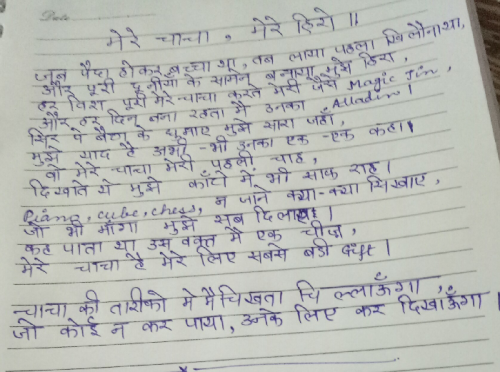 Date
मेरे चाचा, मेरे हिरो ॥
जब पैदा होकर बच्चा था, तब लाया पहला खिलौना था,
और पूरी दुनीया के सामने बनाया मुझे हिरा,
हर विश पूरी मेरे चाचा करते मेरी जैसे Magic Jin,
और हर दिन बना रहता मैं उनका Alladin।
सिर पे बैठा के घुमाए मुझे सारा जहाँ,
मुझे याद है अभी-भी उनका एक-एक कहा।
वो मेरे चाचा मेरी पहली चाह,
दिखाते थे मुझे काँटो में भी साफ राह।
Piano, cube, chess, न जाने क्या-क्या सिखाए,
जो भी माँगा मुझे सब दिलाए।
कह पाता था उस वक्त मैं एक चीज,
मेरे चाचा है मेरे लिए सबसे बडी Gift।
चाचा की तारीको मे मै चिखता चिल्लाऊँगा,
जो कोई न कर पाया, उनके लिए कर दिखाऊँगा।